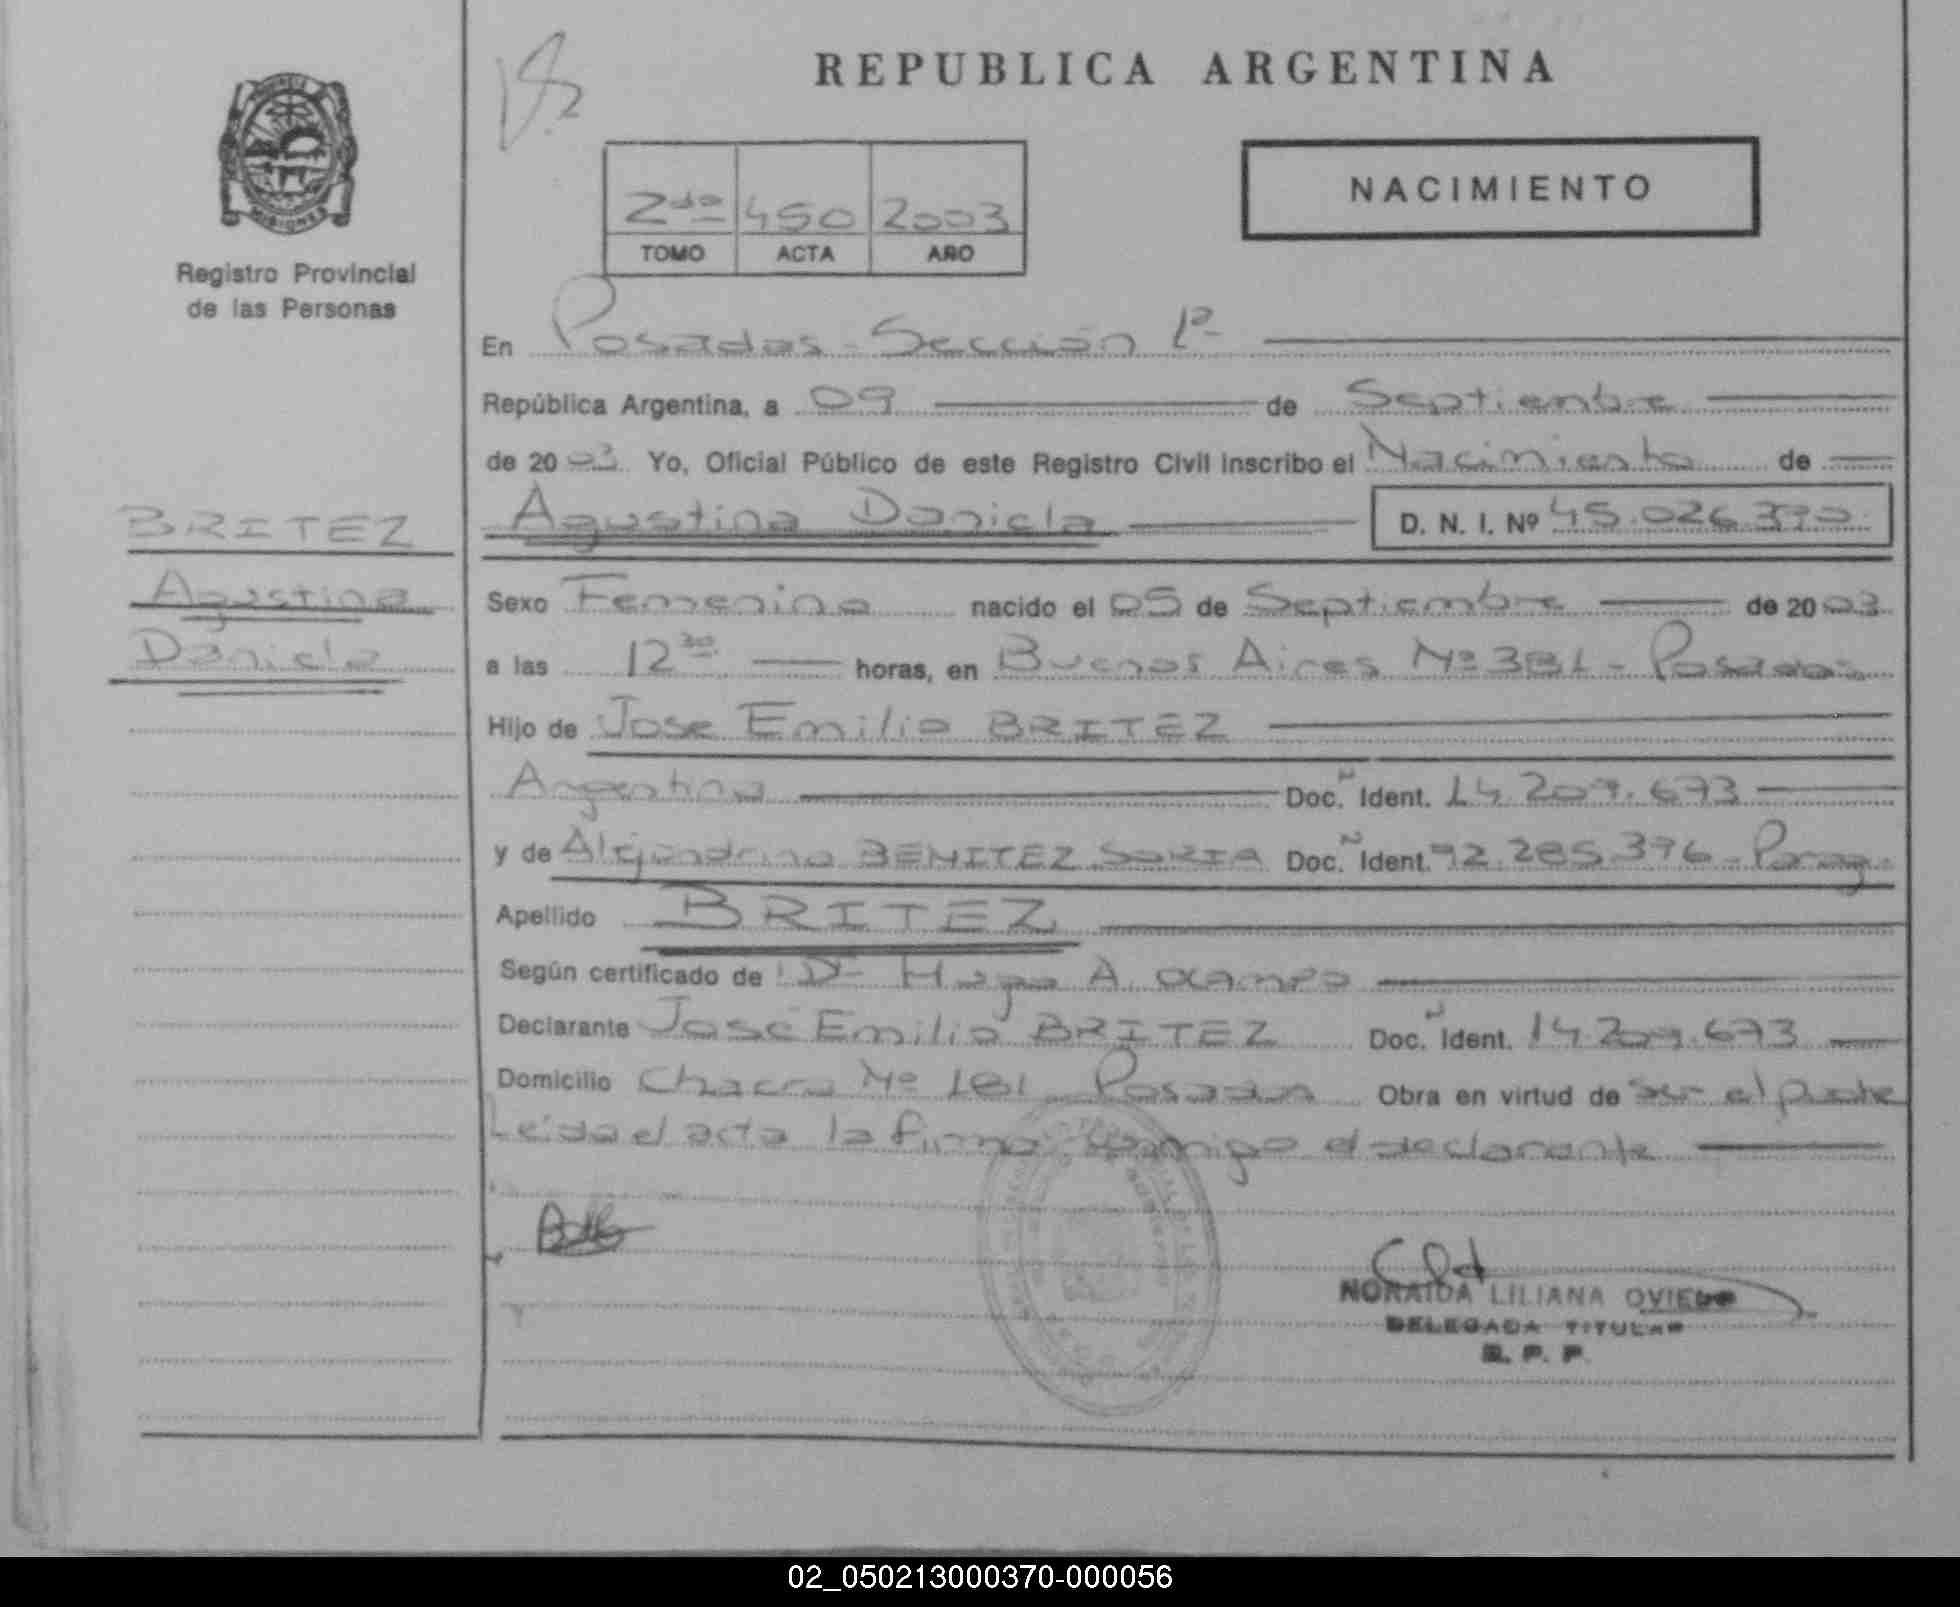 REPUBLICA ARGENTINA
NACIMIENTO
2da 450 2003
TOMO ACTA AÑO
MISIONES
Registro Provincial
de las Personas
En Posadas - Sección 1a
República Argentina, a 09 de Septiembre
de 2003 Yo, Oficial Público de este Registro Civil inscribo el Nacimiento de
BRITEZ
Agustina
Daniela
Agustina Daniela D. N. I. Nº 45.026.390
Sexo Femenino nacido el 05 de Septiembre de 2003
a las 12 30 horas, en Buenos Aires Nº 381 - Posadas
Hijo de Jose Emilio BRITEZ
Argentino Doc. Ident. 14.209.673
y de Alejandrina BENITEZ SORIA Doc. Ident. 92.285.396 - Parag.
Apellido BRITEZ
Según certificado de Dr Hugo A. Ocampo
Declarante José Emilio BRITEZ Doc. Ident. 14.209.673
Domicilio Chacra Nº 181 Posadas Obra en virtud de ser el padre
Leída el acta la firma conmigo el declarante
NORAIDA LILIANA OVIEDO
DELEGADA TITULAR
R. P. P.
02_050213000370-000056